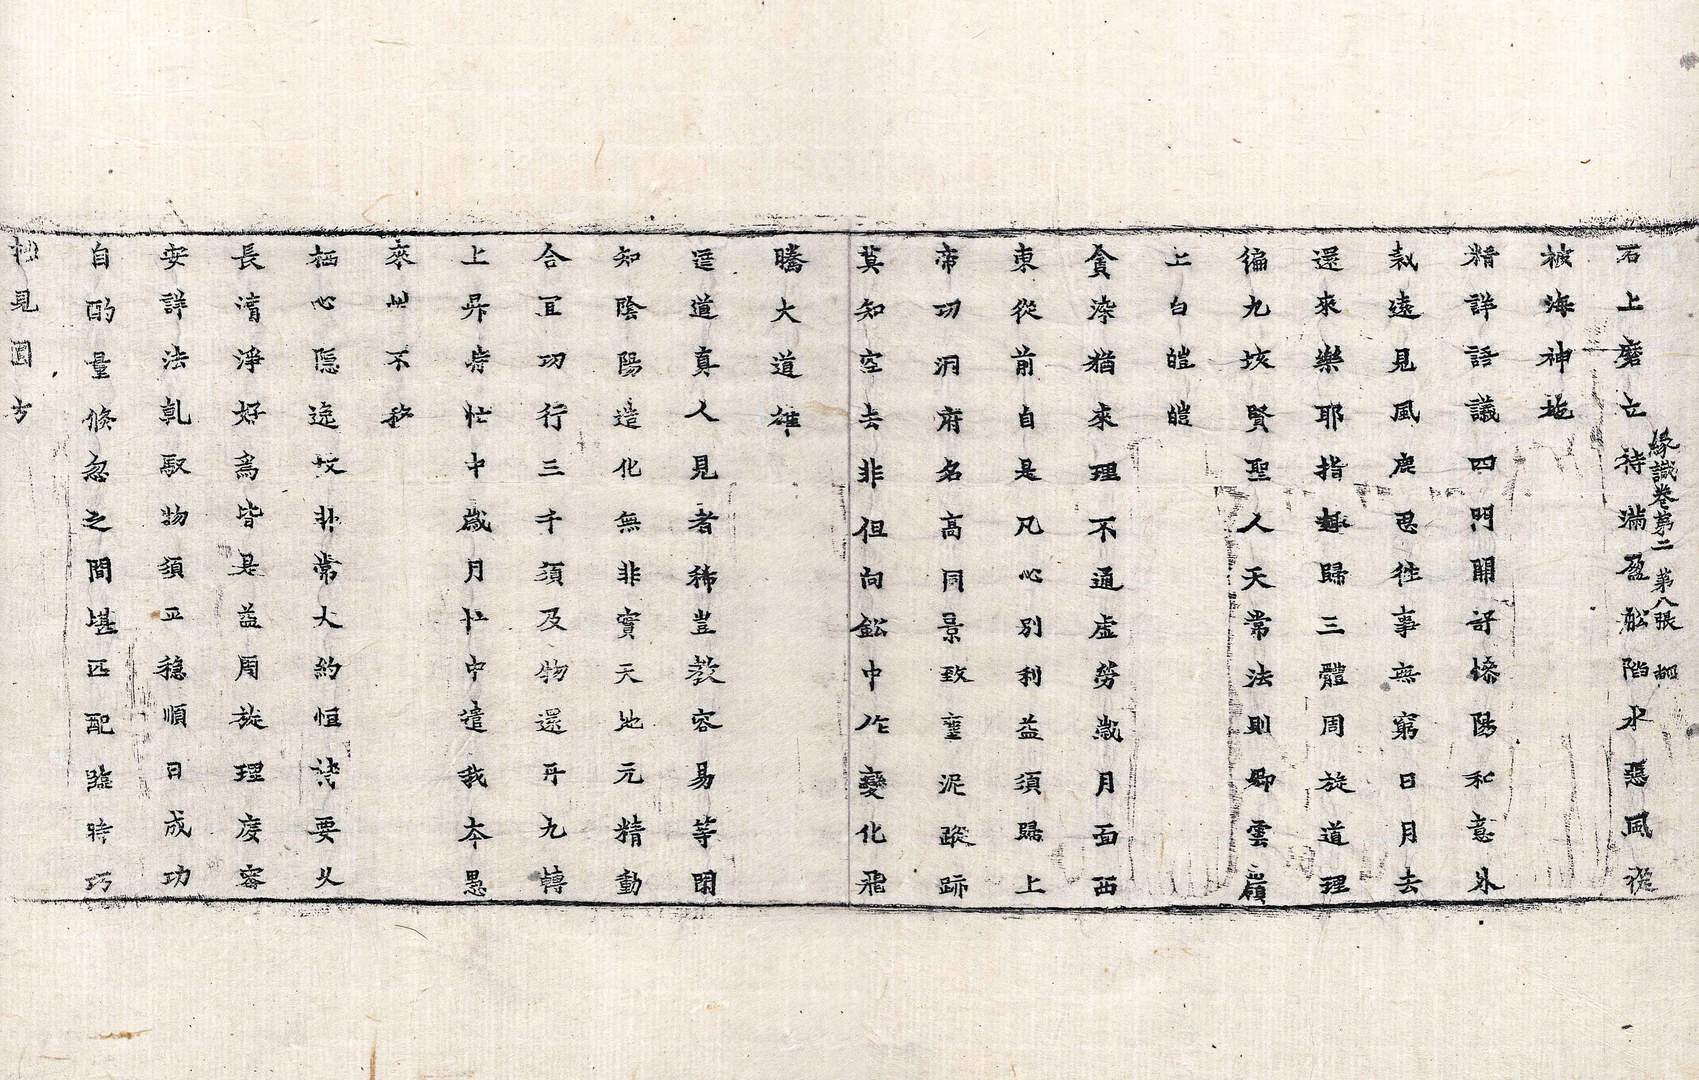 緣識卷第二　第八張
石上磨立待滿盈舩陷水惡風從
被海神拖
精詳語議四門開訝慘陽和意外
栽遠見風塵思往事無窮日月去
還來樂耶指趣歸三體周旋道理
徧九垓賢聖人天常法則鄉雲嶺
上白皚皚
貪染猶來理不通虛勞歲月面西
東從前自是凡心別利益須歸上
帝功洞府名高同景致塗泥蹤跡
莫知空去非但向鈆中作變化飛
騰大道雄
逗道真人見者稀豈教容易等閑
知陰陽造化無非實天地元精動
合宜功行三千須及物還丹九轉
上昇時忙中歲月忙中遣我本愚
來性不移
栖心隱逸故非常大約恒設要久
長清淨好為皆是益周旋理度容
安詳法軌馭物須正穩順日成功
自酌量倐忽之間堪匹配臨時巧
拙見圓方